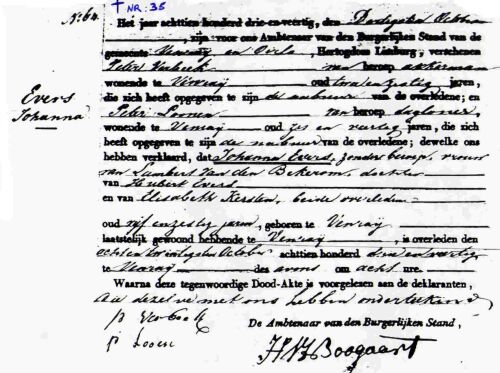 † NR: 35
N: 64.
Het jaar achttien honderd drie en veertig, den Dertigsten October
, zijn voor ons Ambtenaar van den Burgerlijken Stand van de
gemeente Venray en Oirlo, Hertogdom Limburg, verschenen
Peter Verbeek van beroep akkerman
wonende te Venray oud twee en zestig jaren,
die zich heeft opgegeven te zijn de nabuur van de overledene; en
Peter Loonen van beroep daglooner,
wonende te Venray oud zes en veertig jaren, die zich
heeft opgegeven te zijn de nabuur van de overledene; dewelke ons
hebben verklaard, dat Johanna Evers, zonder beroep, vrouw
Evers
Johanna
van Lambert Van den Bekerom, dochter
van Hubert Evers
en van Elisabeth Kersten, beide overleden
oud vijf en zestig jaren, geboren te Venray
laatstelijk gewoond hebbende te Venray, is overleden den
achtentwintigsten October achttien honderd drie en veertig
te Venray des avons om acht ure.
Waarna deze tegenwoordige Dood-Akte is voorgelezen aan de deklaranten,
die dezelve met ons hebben onderteekend
p Verbeek
p Loonen
De Ambtenaar van den Burgerlijken Stand,
Boogaart